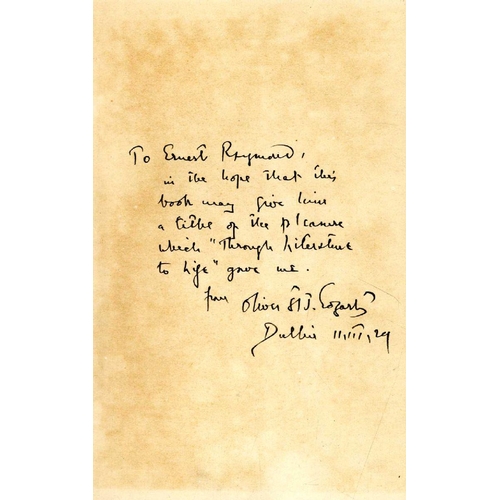 To Ernest Raymond,
in the hope that this
book may give him
a tithe of the pleasure
which "Through Literature
to Life" gave me.
from Oliver St J. Gogarty
Dublin 11.III.29